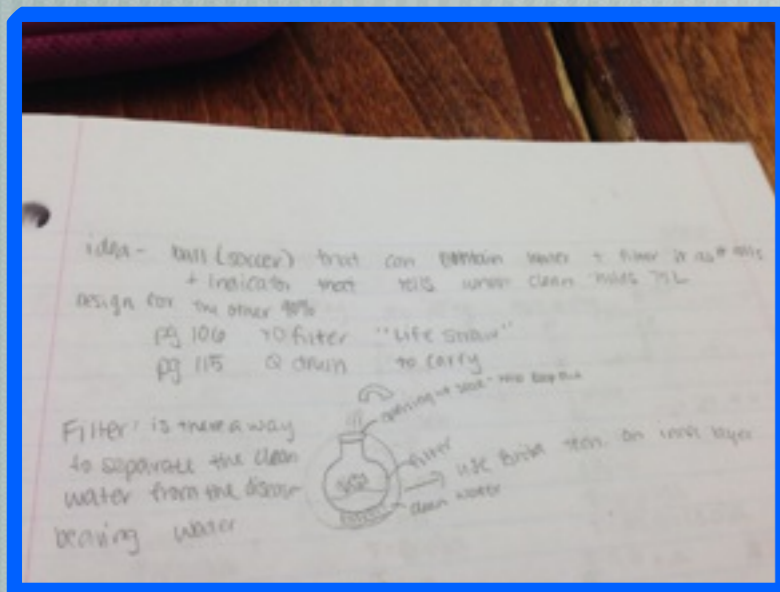 idea - ball (soccer) that can contain water + filter it as it rolls
+ indicator that tells when clean holds
Design for the other 90%
pg 106 to filter "Life Straw"
pg 115 Q drum to carry
opening
Filter: is there a way
to separate the clean
water from the disease
bearing water
filter
use Brita tech. on inner layer
clean water